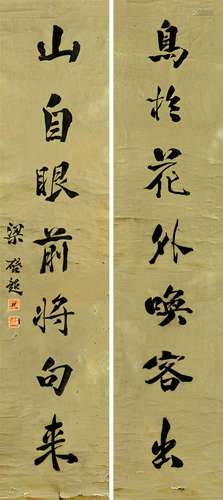 鳥於花外喚客出
山自眼前將句来
梁啓超